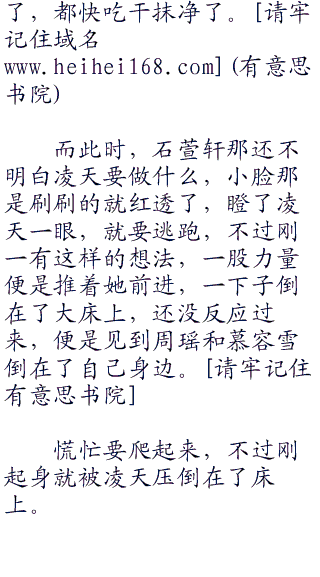 了，都快吃干抹净了。[请牢
记住域名
www.heihei168.com](有意思
书院)
而此时，石萱轩那还不
明白凌天要做什么，小脸那
是刷刷的就红透了，瞪了凌
天一眼，就要逃跑，不过刚
一有这样的想法，一股力量
便是推着她前进，一下子倒
在了大床上，还没反应过
来，便是见到周瑶和慕容雪
倒在了自己身边。[请牢记住
有意思书院]
慌忙要爬起来，不过刚
起身就被凌天压倒在了床
上。